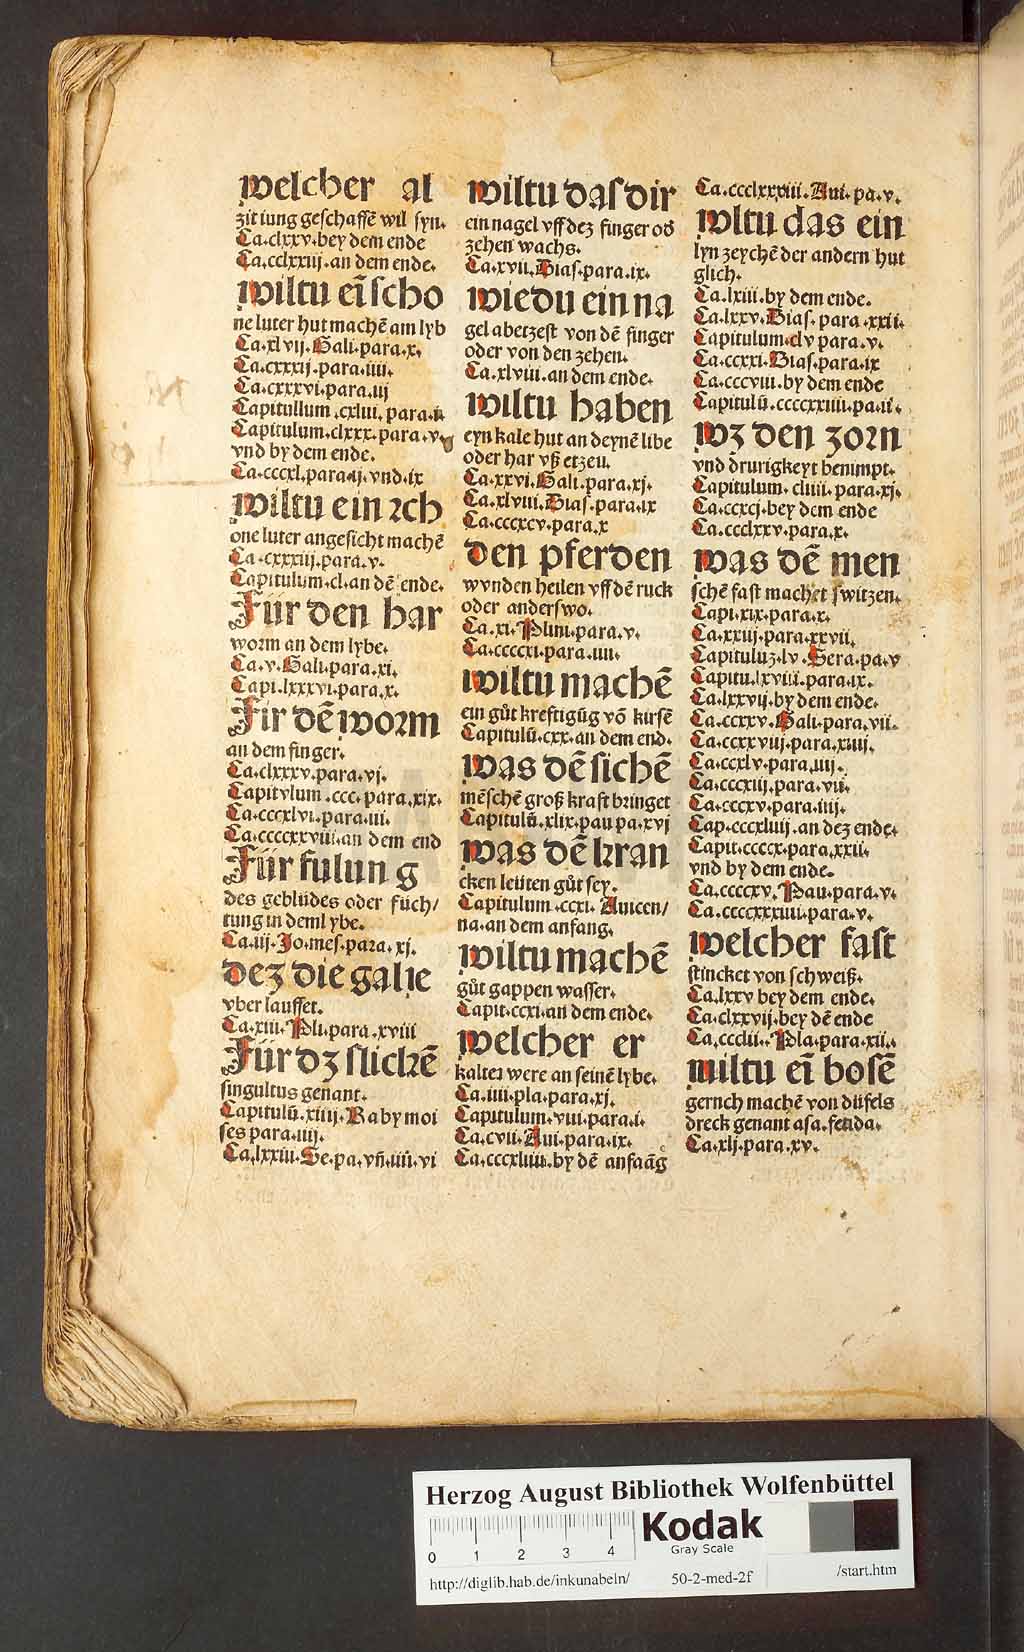 welcher al
zit iung geschaffē wil syn.
Ca.clxxv.bey dem ende
Ca.cclxxiij.an dem ende.
wiltu eī scho
ne luter hut machē am lyb
Ca.xlvij.Gali.para.x.
Ca.cxxxij.para.iiii.
Ca.cxxxvi.para.iij
Capitullum.cxlui.para.ii
Capitulum.clxxx.para.v.
vnd by dem ende.
Ca.cccxl.para.ij.vnd.ix
wiltu ein rch
one luter angesicht machē
Ca.cxxxiij.para.v.
Capitulum.cl.an dē ende.
Für den har
worm an dem lybe.
Ca.v.Gali.para.xi.
Capi.lxxxvi.para.x.
Fir dē worm
an dem finger.
Ca.clxxxv.para.vj.
Capitvlum.ccc.para.xix.
Ca.cccxlvi.para.iii.
Ca.ccccxxviii.an dem end
Für fulun g
des geblüdes oder füch/
tung in dem lybe.
Ca.iij.Jo.mes.para.xj.
dez die galle
vber lauffet.
Ca.xiii.Pli.para.xviii
Für dz slickē
singultus genant.
Capitulū.xiiij.Raby moi
ses para.iiij.
Ca.lxxiii.Se.pa.vñ.iiii.vi
wiltu das dir
ein nagel vff dez finger od
zehen wachs.
Ca.xvii.Dias.para.ix.
wie du ein na
gel abetzest von dē finger
oder von den zehen.
Ca.xlviii.an dem ende.
wiltu haben
eyn kale hut an deynē libe
oder har vß etzen.
Ca.xxvi.Gali.para.xj.
Ca.xlviii.Dias.para.ix
Ca.cccxcv.para.x
den pferden
wvnden heilen vff dē ruck
oder anderswo.
Ca.xi.Plini.para.v.
Ca.ccccxi.para.iiii.
wiltu machē
ein gůt kreftigūg vō kirsē
Capitulū.cxx.an dem end.
was dē sichē
mēschē groß kraft bringet
Capitulū.xlix.pau pa.xvj
was dē kran
cken leüten gůt sey.
Capitulum.ccxi.Auicen/
na.an dem anfang.
wiltu machē
gůt gappen wasser.
Capit.ccxi.an dem ende.
welcher er
kalter were an seinē lybe.
Ca.iiii.pla.para.xj.
Capitulum.viii.para.i.
Ca.cvii.Aui.para.ix.
Ca.cccxliiii.by dē anfaāg
Ca.ccclxxxiii.Aui.pa.v.
wltu das ein
lyn zeychē der andern hut
glich.
Ca.lxiii.by dem ende.
Ca.lxxv.Dias.para.xxii.
Capitulum.clv para.v.
Ca.ccxxi.Dias.para.ix
Ca.cccviii.by dem ende
Capitulū.ccccxxiiii.pa.ii.
wz den zorn
vnd drurigkeyt benimpt.
Capitulum.cliiii.para.xj.
Ca.ccxcj.bey dem ende
Ca.ccclxxv.para.x.
was dē men
schē fast machet switzen.
Capi.xix.para.x.
Ca.xxiij.para.xxvii.
Capituluz.lv.Sera.pa.v
Capitu.lxviii.para.ix.
Ca.lxxvij.by dem ende.
Ca.ccxxv.Gali.para.vii.
Ca.ccxxviij.para.xiiij.
Ca.ccxlv.para.iiij.
Ca.cccxiij.para.vii.
Ca.cccxv.para.iiij.
Cap.cccxliiij.an dez ende.
Capit.ccccx.para.xxii.
vnd by dem ende.
Ca.ccccxv.Pau.para.v.
Ca.ccccxxxiiii.para.v.
welcher fast
stincket von schweiß.
Ca.lxxv bey dem ende.
Ca.clxxvij.bey dē ende
Ca.ccclii.Pla.para.xii.
wiltu eī bosē
gernch machē von düfels
dreck genant asa.fetida.
Ca.xlj.para.xv.
Herzog August Bibliothek Wolfenbüttel
0 1 2 3 4
Kodak
Gray Scale
http://diglib.hab.de/inkunabeln/ 50-2-med-2f /start.htm